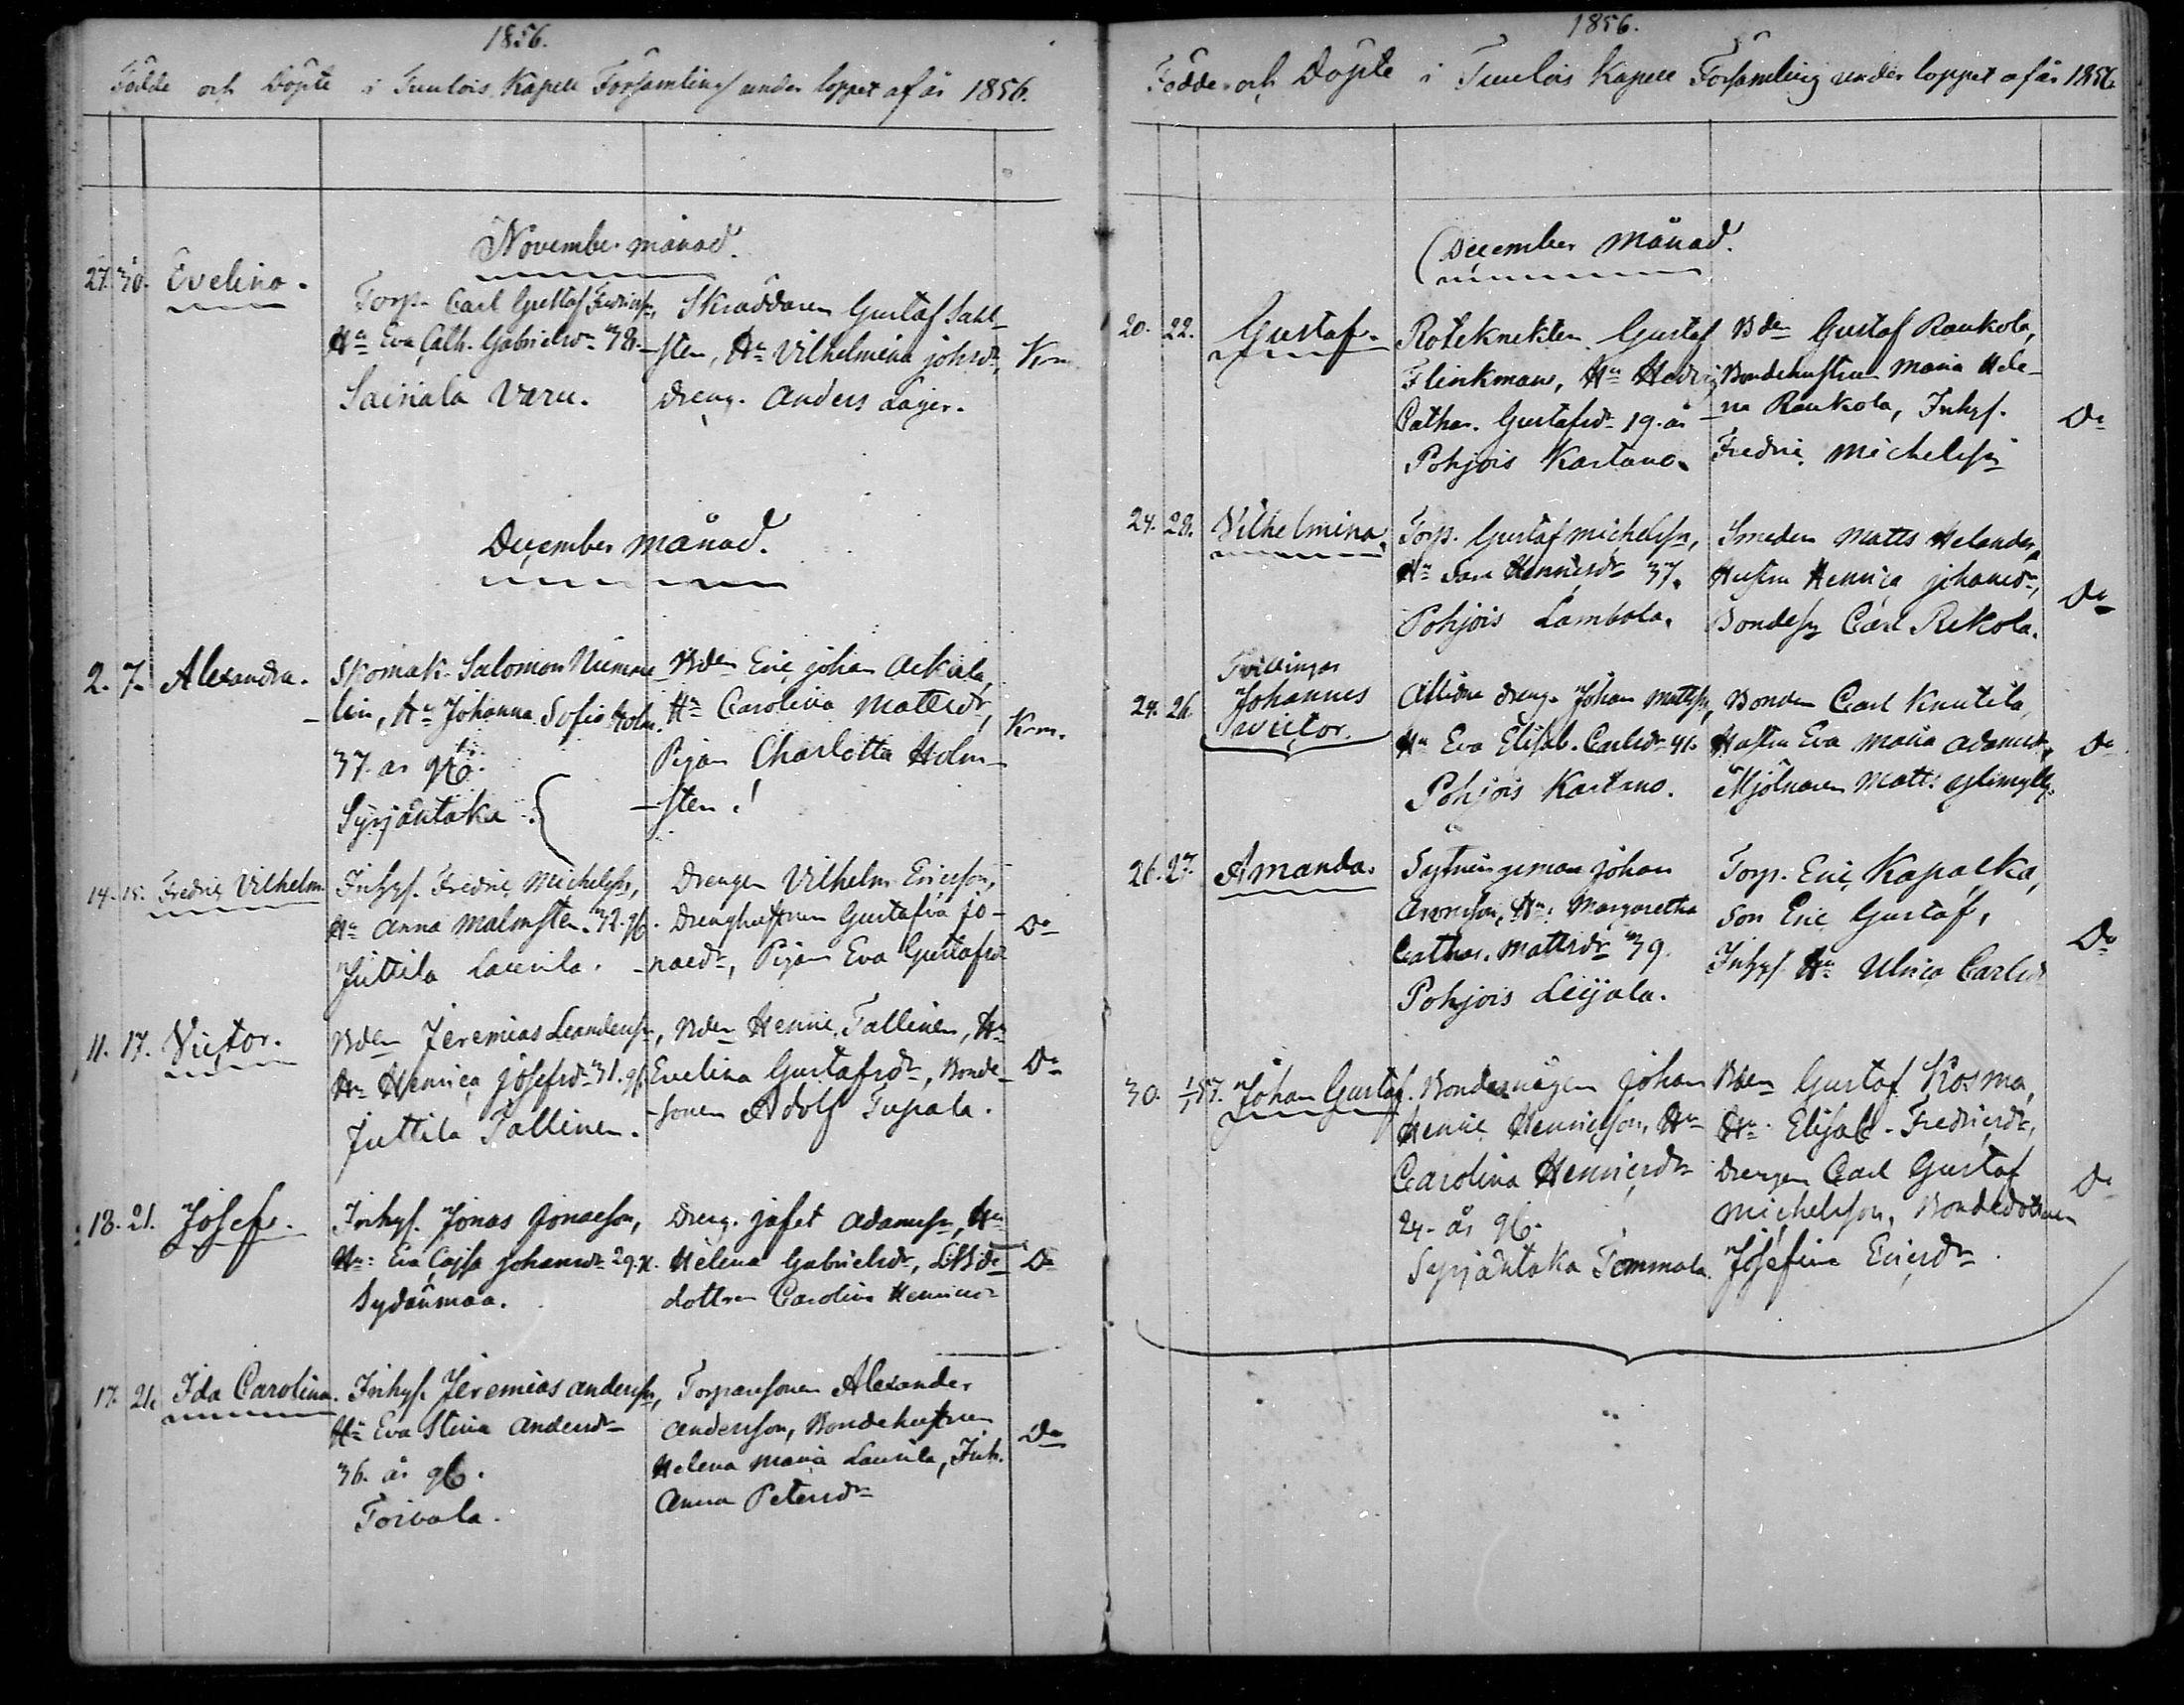 1856.
Födde och Döpte i Tuulois Kapell Församling under loppet af år 1856.
November månad.
27. 30. Evelina.
Torp. Carl Gustaf Fredricss.,
Hu Eva Cath. Gabrielsdr 38.
Sairiala Varu.
Skräddaren Gustaf Sahl-
sten, Hu Vilhelmina johsdr,
Dreng. Anders Lager.
Krm.
December månad.
2. 7. Alexandra.
Skomak. Salomon Numme-
lin, Hu Johanna Sofia Holm.
37. år gb.
Syrjäntaka
Bden Eric johan Arkiala,
Hu Carolina Mattsdr,
Pigan Charlotta Holm-
sten.
Krm.
14. 15. Fredric Vilhelm
Inhys. Fredric Michelss,
Hu Anna Malmsten. 32. gb.
Juttila Laurila.
Drengen Vilhelm Ericsson,
Drenghustrun Gustafva Jo-
naedr, Pigan Eva Gustafsdr
Do
11. 17. Victor.
Bden Jeremias Leanderss,
Hu Henrica josefsdr 31. gb.
Juttila Tallinen.
Bden Henric Tallinen, Hu
Evelina Gustafsdr, Bonde-
sonen Adolf Tupala.
Do
18. 21. Josef.
Inhys. Jonas Jonaesson,
Hu: Eva Cajsa johansdr 29.
Sydänmaa.
Dreng. Jafet Adamss, Hu
Helena Gabrielsdr,
dottren Carolina Henricsdr
Do
17. 21. Ida Carolina.
Inhys. Jeremias anderss,
Hu Eva Stina Andersdr
36. år gb.
Toivola.
Torparesonen Alexander
Andersson, Bondehustrun
Helena Maria Laurila, Inh.
Anna Petersdr
Do
1856.
Födde och Döpte i Tuulois Kapell Församling under loppet af år 1856.
December månad.
20. 22. Gustaf.
Roteknekten Gustaf
Flinkman, Hu Hedvig
Cathar. Gustafsdr 19. år
Pohjois Kartano.
Bden Gustaf Raukola,
Bondehustrun Maria Hele-
na Raukola, Inhys.
Fredric Michelss
Do
24. 28. Vilhelmina.
Torp. Gustaf Michelss,
Hu Sara Henricsdr 37.
Pohjois Lambola.
Smeden Matts Helander,
Hustru Henrica johansdr,
Bondess Carl Rekola.
Do
Tvillingar
24. 26. Johannes
Victor.
Aflidne dreng. Johan Mattss,
Hu Eva Elisab. Carlsdr 41.
Pohjois Kartano.
Bonden Carl Knutila,
Hustru Eva Maria Adamsdr,
Mjölnaren Matts Ylimylly.
Do
26. 27. Amanda.
Sytningsman johan
Aronsson, Hu: Margaretha
Cathar. Mattsdr 39.
Pohjois Leijala.
Torp. Eric Kapalka,
Son Eric Gustaf,
Inhys. Hu Ulrica Carlsdr
Do
30. 1/1 57. Johan Gustaf.
Bondemågen Johan
Henric Henricsson, Hu
Carolina Henricsdr
24. år gb.
Syrjäntaka Tommola.
Bden Gustaf Kosma,
Hu. Elisab. Fredricsdr,
Drengen Carl Gustaf
Michelsson, Bondedottren
Josefina Ericsdr
Do